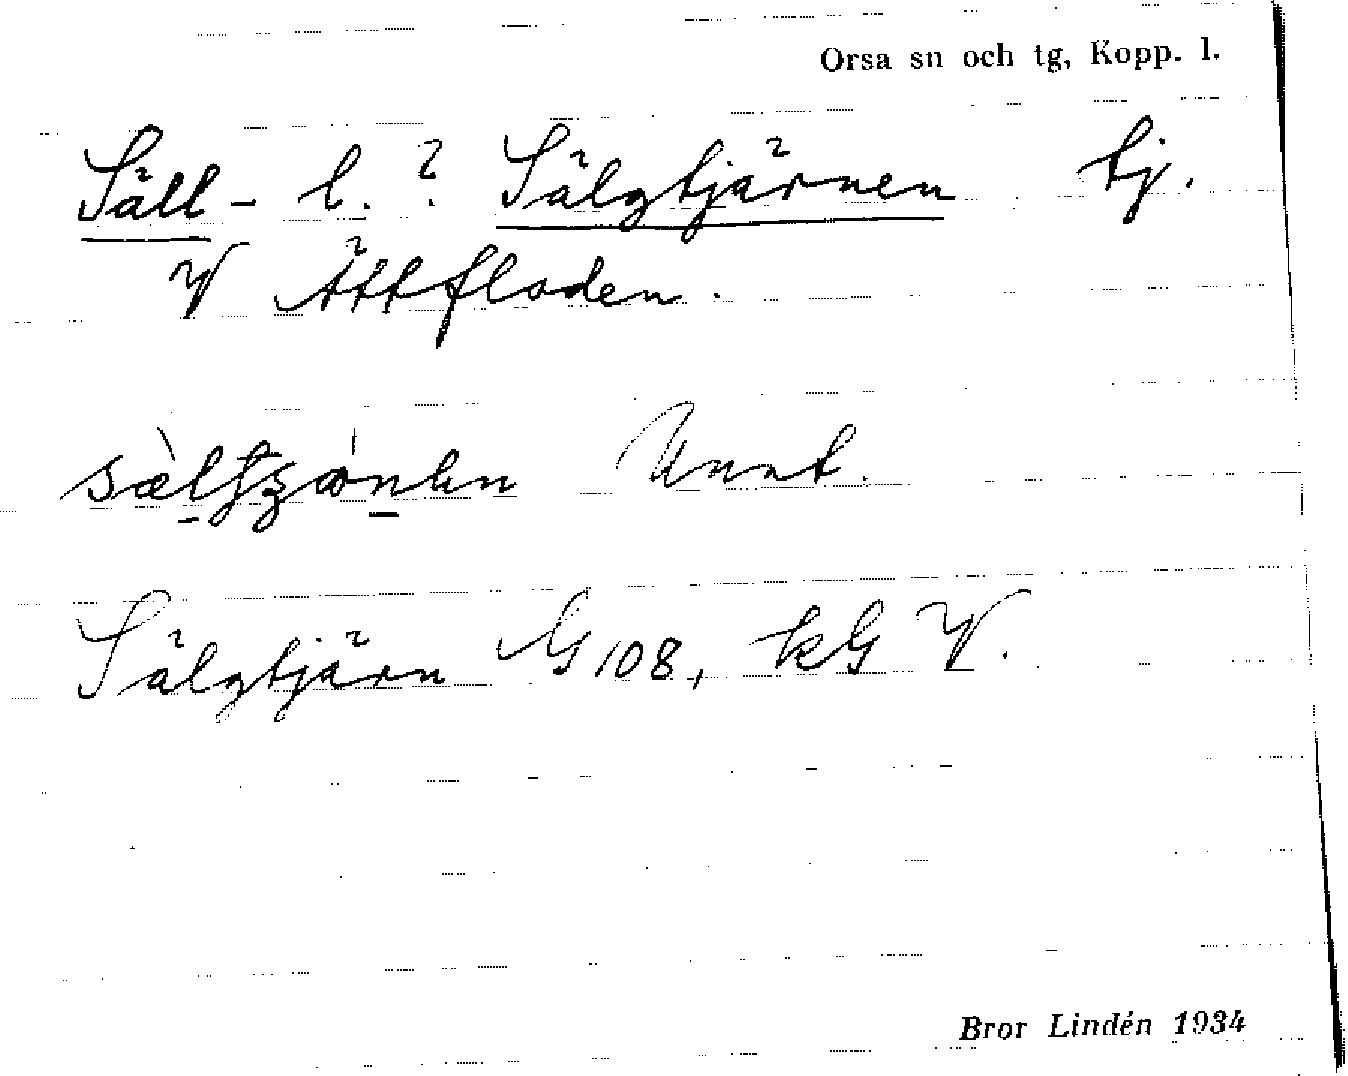 Orsa sn och tg, Kopp. l.
Säll- l. ? Sälgtjärnen tj.
V Ättfloden.
Unnt.
Sälgtjärn G 108, kG V.
Bror Lindén 1934